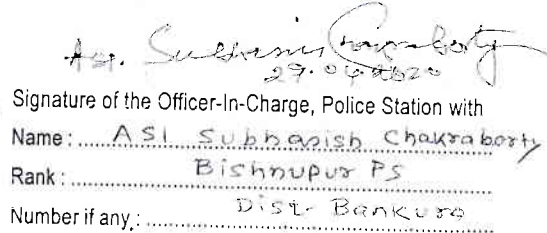 ASI. Subhasis Chakraborty
29.04.2020
Signature of the Officer-In-Charge, Police Station with
Name : ASI Subhasish Chakraborty
Rank : Bishnupur PS
Number if any. : Dist- Bankura